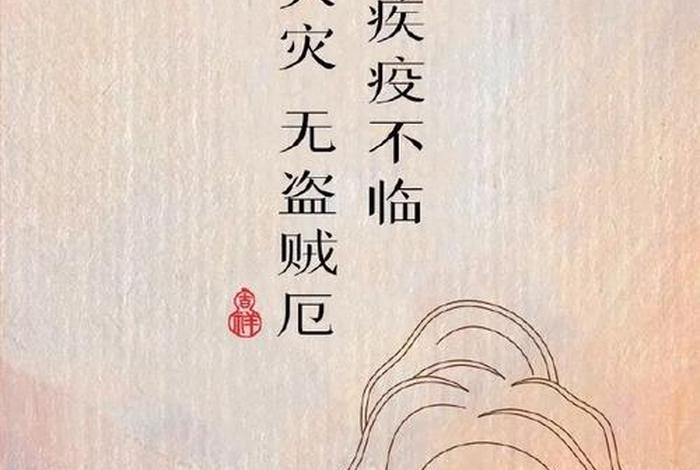 疾疫不临
灾 无盗贼厄
吉祥